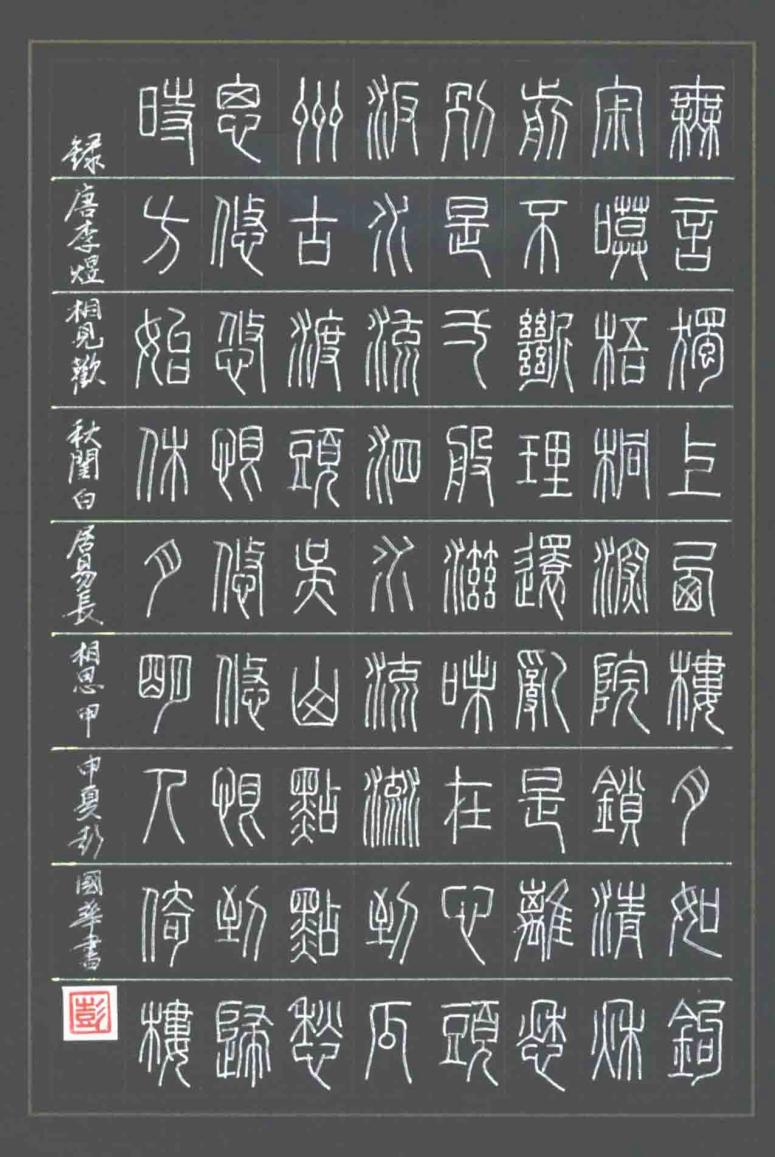 無言獨上西樓月如鉤
寂寞梧桐深院鎖清秋
剪不斷理還亂是離愁
別是一般滋味在心頭
汴水流泗水流流到瓜
州古渡頭吳山點點愁
思悠悠恨悠悠恨到歸
時方始休月明人倚樓
錄唐李煜相見歡秋閨白居易長相思甲申夏彭國華書
彭